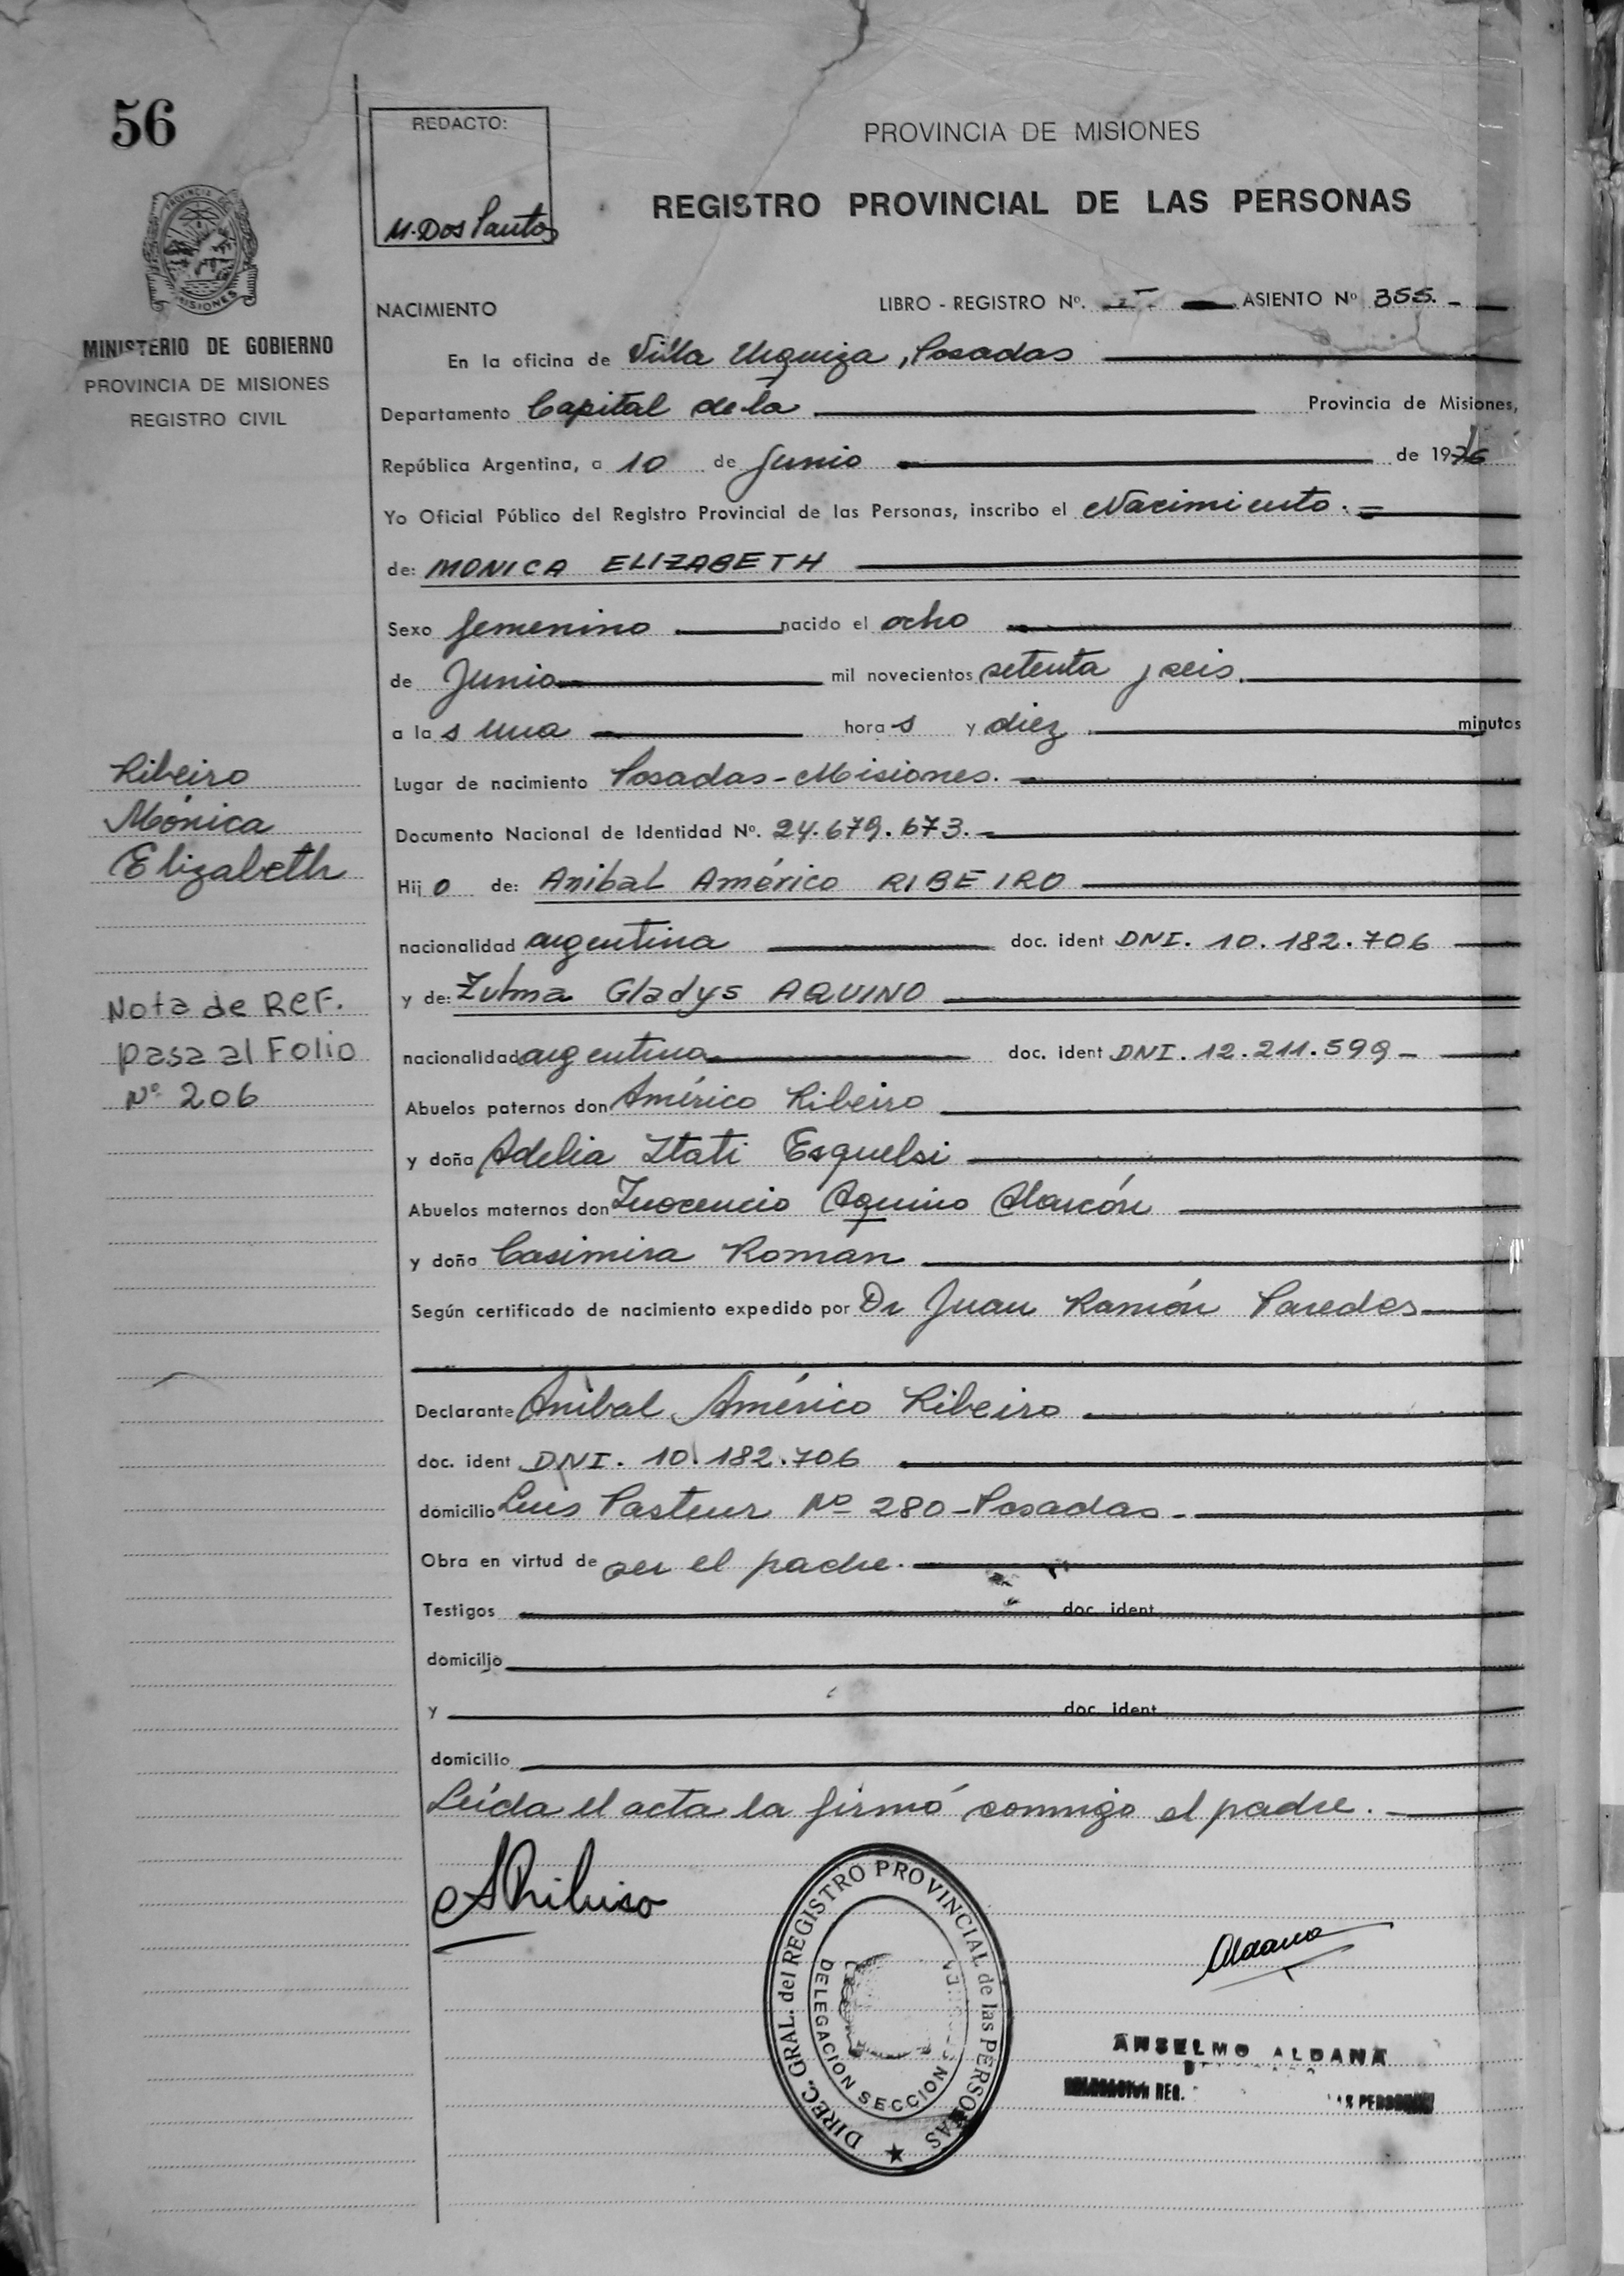 56
REDACTO:
M. Dos Santos
PROVINCIA DE MISIONES
REGISTRO PROVINCIAL DE LAS PERSONAS
PROVINCIA DE
MISIONES
MINISTERIO DE GOBIERNO
PROVINCIA DE MISIONES
REGISTRO CIVIL
NACIMIENTO LIBRO - REGISTRO Nº. ASIENTO Nº 355. -
En la oficina de Villa Urquiza, Posadas
Departamento Capital de la Provincia de Misiones,
República Argentina, a 10 de Junio de 1976
Yo Oficial Público del Registro Provincial de las Personas, inscribo el Nacimiento. =
de: MONICA ELIZABETH
Sexo femenino nacido el ocho
de Junio mil novecientos setenta y seis.
a la s una hora s y diez minutos
Lugar de nacimiento Posadas - Misiones. -
Documento Nacional de Identidad Nº. 24.679.673. -
Hij o de: Anibal Américo RIBEIRO
nacionalidad argentina doc. ident DNI. 10.182.706
y de: Zulma Gladys AQUINO
nacionalidad argentina doc. ident DNI. 12.211.599 -
Abuelos paternos don Américo Ribeiro
y doña Adelia Itati Esquelsi
Abuelos maternos don Inocencio Aquino Alarcón
y doña Casimira Román
Según certificado de nacimiento expedido por Dr Juan Ramón Paredes
Declarante Anibal Américo Ribeiro
doc. ident DNI. 10.182.706
domicilio Luis Pasteur Nº 280 - Posadas -
Obra en virtud de ser el padre.
Testigos doc. ident
domicilio
y doc. ident
domicilio
Leída el acta la firmó conmigo el padre. -
Ribeiro
Mónica
Elizabeth
Nota de Ref.
pasa al Folio
Nº 206
ARibeiro
DIREC. GRAL. del REGISTRO PROVINCIAL de las PERSONAS
DELEGACION SECCION
Aldana
ANSELMO ALDANA
DELEGACION REG. AS PERSONAS